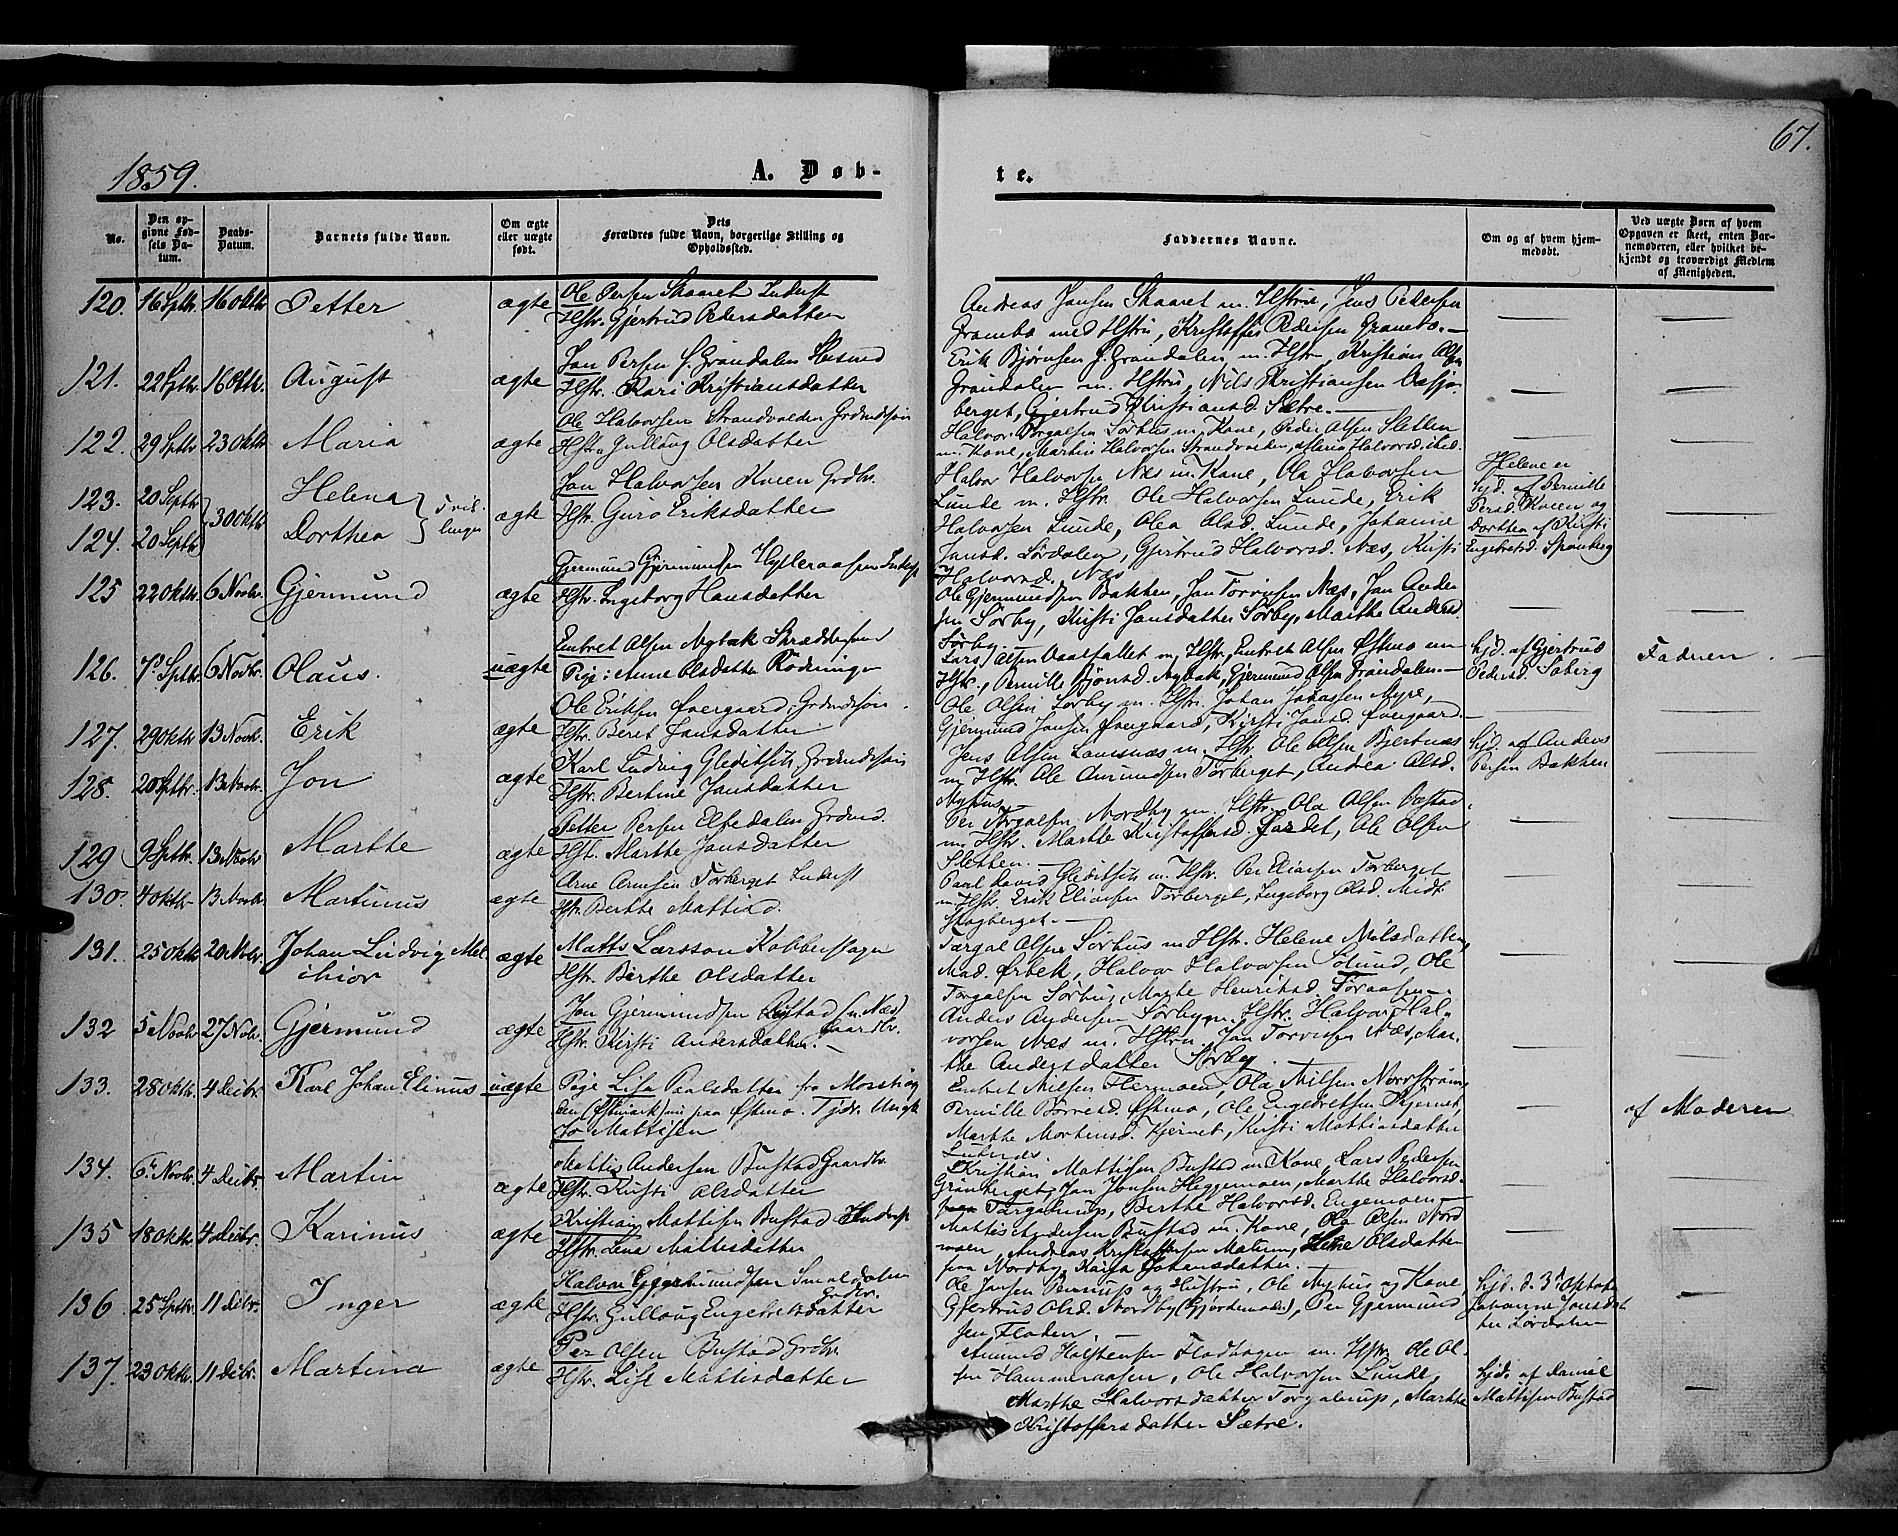 67.
1859.
A. Døb-
te.
No.
Den op-
givne Fød-
sels Da-
tum.
Daabs-
Datum.
Barnets fulde Navn.
Om ægte
eller uægte
født.
Dets
Forældres fulde Navn, borgerlige Stilling og
Opholdssted.
Faddernes Navne.
Om og af hvem hjem-
medøbt.
Ved uægte Børn af hvem
Opgaven er skeet, enten Bar-
nemoderen, eller hvilket be-
kjendt og troværdigt Medlem
af Menigheden.
120. 16 Septbr. 16 Oktbr. Petter ægte
Ole Persen Skaaret Inderst
Hstr. Gjertrud Pedersdatter
Andreas Jansen Skaaret m. Hstru, Jens Pedersen
Grambo med Hstru, Kristoffer Pedersen Grambo.
121. 22 Septbr. 16 Oktbr. August ægte
Jon Persen Grøndalen
Hstr. Kari Kristiansdatter
Erik Bjørnsen Grøndalen m. Hstr, Kristian Olsen
Grøndalen m. Hstru, Nils Kristiansen
berget, Gjertrud Kristiansd. Sætre.
122. 29 Septbr. 23 Oktbr. Maria ægte
Ole Halvorsen Strandvolden
Hstr. Gullaug Olsdatter
Halvor Torgalsen Sørhus m. Kone, Peder Olsen Sletten
m. Kone, Martin Halvorsen Strandvolden, Maria Halvorsd. ibid.
123. 20 Septbr. Helena
124. 20 Septbr. 30 Oktbr. Dorthea Tvil-
linger ægte
Jon Halvorsen Kveen Grdbr.
Hstr. Guro Eriksdatter
Halvor Halvorsen Næs m. Kone, Ola Halvorsen
Lunde m. Hstr. Ole Halvorsen Lunde, Erik
Halvorsen Lunde, Olea Olsd. Lunde, Johanne
Jansd. Lørdalen, Gjertrud Halvorsd. Næs, Kirsti
Halvorsd. Næs
Helene er
hjd. af Pernille
Persd. Kveen og
Dorthea af Kirsti
Engebretsd. Sponberg
125 22 Oktbr. 6 Novbr. Gjermund ægte
Gjermund Gjermundsen Hylleraasen Inderst
Hstr. Ingeborg Hansdatter
Ole Gjermundsen Bakken, Jon Torvisen Næs, Jon Ander
sen Sørby, Kirsti Jonsdatter Sørby, Marthe Andersd.
Sørby
126. 7 Septbr. 6 Novbr. Olaus. uægte
Embret Olsen Nybak
Pige: Anne Olsdatter Rødningen
Lars Olsen Vaalfallet m. Hstr, Embret Olsen Østmo m
Hstr., Pernille Bjørnsd. Nybak, Gjermund Olsen Grøndalen.
hjd. af Gjertrud
Pedersd. Soberg
Faderen.
127. 29 Oktbr 13 Novbr. Erik ægte
Ole Eriksen Overgaard,
Hstr. Beret Jansdatter
Ole Olsen Sørby m. Hstr. Johan Johansen Myre,
Gjermund Jansen Overgaard, Kirsti Jansd. Overgaard.
128. 20 Septbr. 13 Novbr. Jon ægte
Karl Ludvig Gleditsch,
Hstr. Bertine Jansdatter
Jens Olsen m. Hstr. Ole Olsen Bjertnæs
m Hstr. Ole Amundsen Torberget, Andrea Olsd.
Nyhus
hjd. af Anders
Persen Bakken
129 9 Septbr. 13 Novbr Marthe ægte
Petter Persen Elfdalen
Hstr. Marthe Jansdatter
Per Torgalsen Nordby m Hstr. Ola Olsen
m. Hstr. Marthe Kristoffersd. Ole Olsen
Sletten.
130. 4 Oktbr 13 Novbr Martinus ægte
Arne Arnesen Torberget Inderst
Hstr. Berthe Mattisd.
Paul David Gleditsch m. Hstr. Per Eliasen Torberget
m. Hstr. Erik Eliasen Torberget, Ingeborg Olsd. Midt
Skogberget.
131. 25 Oktbr 20 Novbr. Johan Ludvig Mel
chior ægte
Matts Larsson Kobberslager
Hstr. Birthe Olsdatter
Torgal Olsen Sørhus m Hstr. Helene Nilsdatter,
Mad. Ørbek, Halvor Halvorsen Sølund, Ole
Torgalsen Sørhus, Marthe Henriksd. Foraasen.
132 5 Novbr 27 Novbr. Gjermund ægte
Jon Gjermundsen
Hstr. Kirsti Andersdatter.
Anders Andersen Sørby m. Hstr. Halvor Hal-
vorsen Næs m. Hstru, Jon Torvisen Næs, Mar-
the Andersdatter Sørby.
133. 28 Oktbr. 4 Decbr. Karl Johan Elinus uægte
Pige Lisa Paalsdatter fra
(Østmark) nu paa Østmo. Tjdr. Ungk.
Jo Mattisen
Embret Nilsen Hermoen, Ola Nilsen Norrstrøm
Pernille Børresd. Østmo, Ole Engebretsen Kjernet,
Marthe Mortensd. Kjernet, Kirsti Mattiasdatter
af Moderen
134. 6 Novbr. 4 Decbr. Martin ægte
Mattis Andersen Bustad Gaardbr.
Hstr. Kirsti Olsdatter
Kristian Mattisen Bustad m Kone, Lars Pedersen
Grønberget, Jan Jonsen Heggemoen, Marthe Halvorsd.
Torgalsrup, Berthe Halvorsd. Engemoen
135 18 Oktbr. 4 Decbr. Karinus ægte
Kristian Mattisen Bustad Inderst
Hstr. Lena Mattisdatter
Mattis Andersen Bustad m. Kone, Ola Olsen Nord
moen, Andreas Kristoffersen Materun, Lene Olsdatter
paa Nordby, Karen Johansdatter.
136. 25 Septbr. 11 Decbr. Inger ægte
Halvor Gjermundsen Smaldalen
Grdbr.
Hstr. Gullaug Engebretsdatter
Ole Jansen Pensrup og Hustru, Ole Nyhus og Kone,
Gjertrud Olsd. Nordby (Gjordemod.), Per Gjermund
sen Floden.
hjd. d. 3 Oktober
Johanne Jonsdat
ter Lørdalen
137. 23 Oktbr. 11 Decbr. Martina ægte
Per Olsen Bustad Grdbr.
Hstr. Lise Mattisdatter
Amund Halstensen Flodhagen m. Hstr. Ole Ol-
sen Hammeraasen, Ole Halvorsen Lunde,
Marthe Halvorsdatter Torgalsrup, Marthe
Kristoffersdatter Sætre.
hjd. af Daniel
Mattisen Bustad